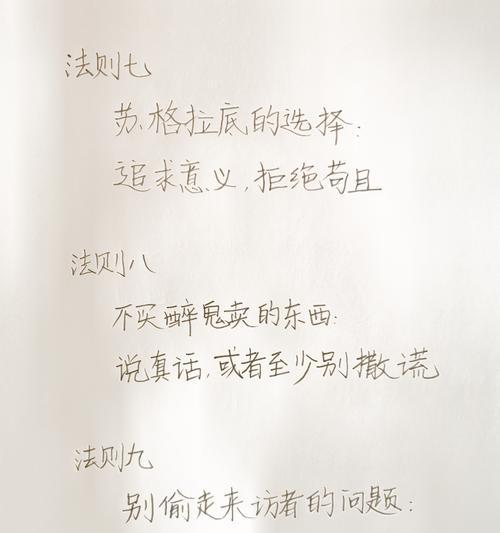 法则七
苏格拉底的选择:
追求意义,拒绝苟且
法则八
不买醉鬼卖的东西:
说真话,或者至少别撒谎
法则九
别偷走来访者的问题: